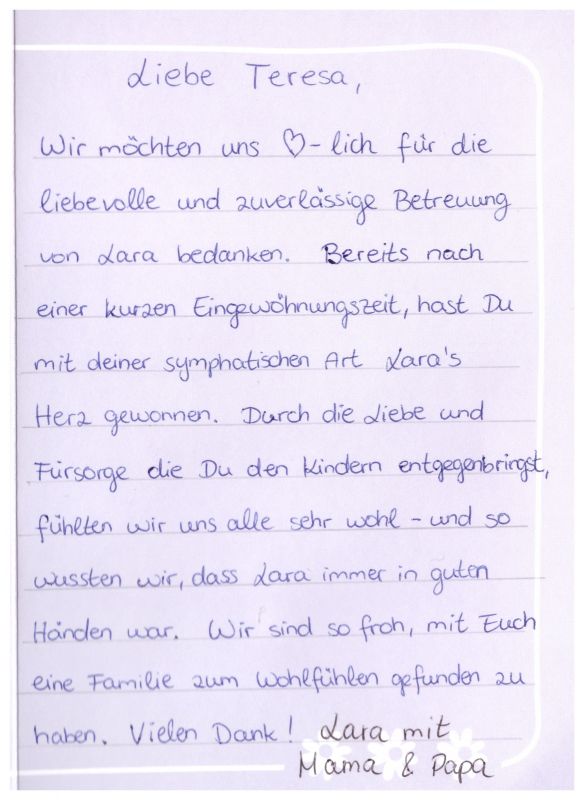 Liebe Teresa,
Wir möchten uns ♡-lich für die
liebevolle und zuverlässige Betreuung
von Lara bedanken. Bereits nach
einer kurzen Eingewöhnungszeit, hast Du
mit deiner symphatischen Art Lara's
Herz gewonnen. Durch die Liebe und
Fürsorge die Du den Kindern entgegenbringst,
fühlten wir uns alle sehr wohl - und so
wussten wir, dass Lara immer in guten
Händen war. Wir sind so froh, mit Euch
eine Familie zum Wohlfühlen gefunden zu
haben. Vielen Dank! Lara mit
Mama & Papa